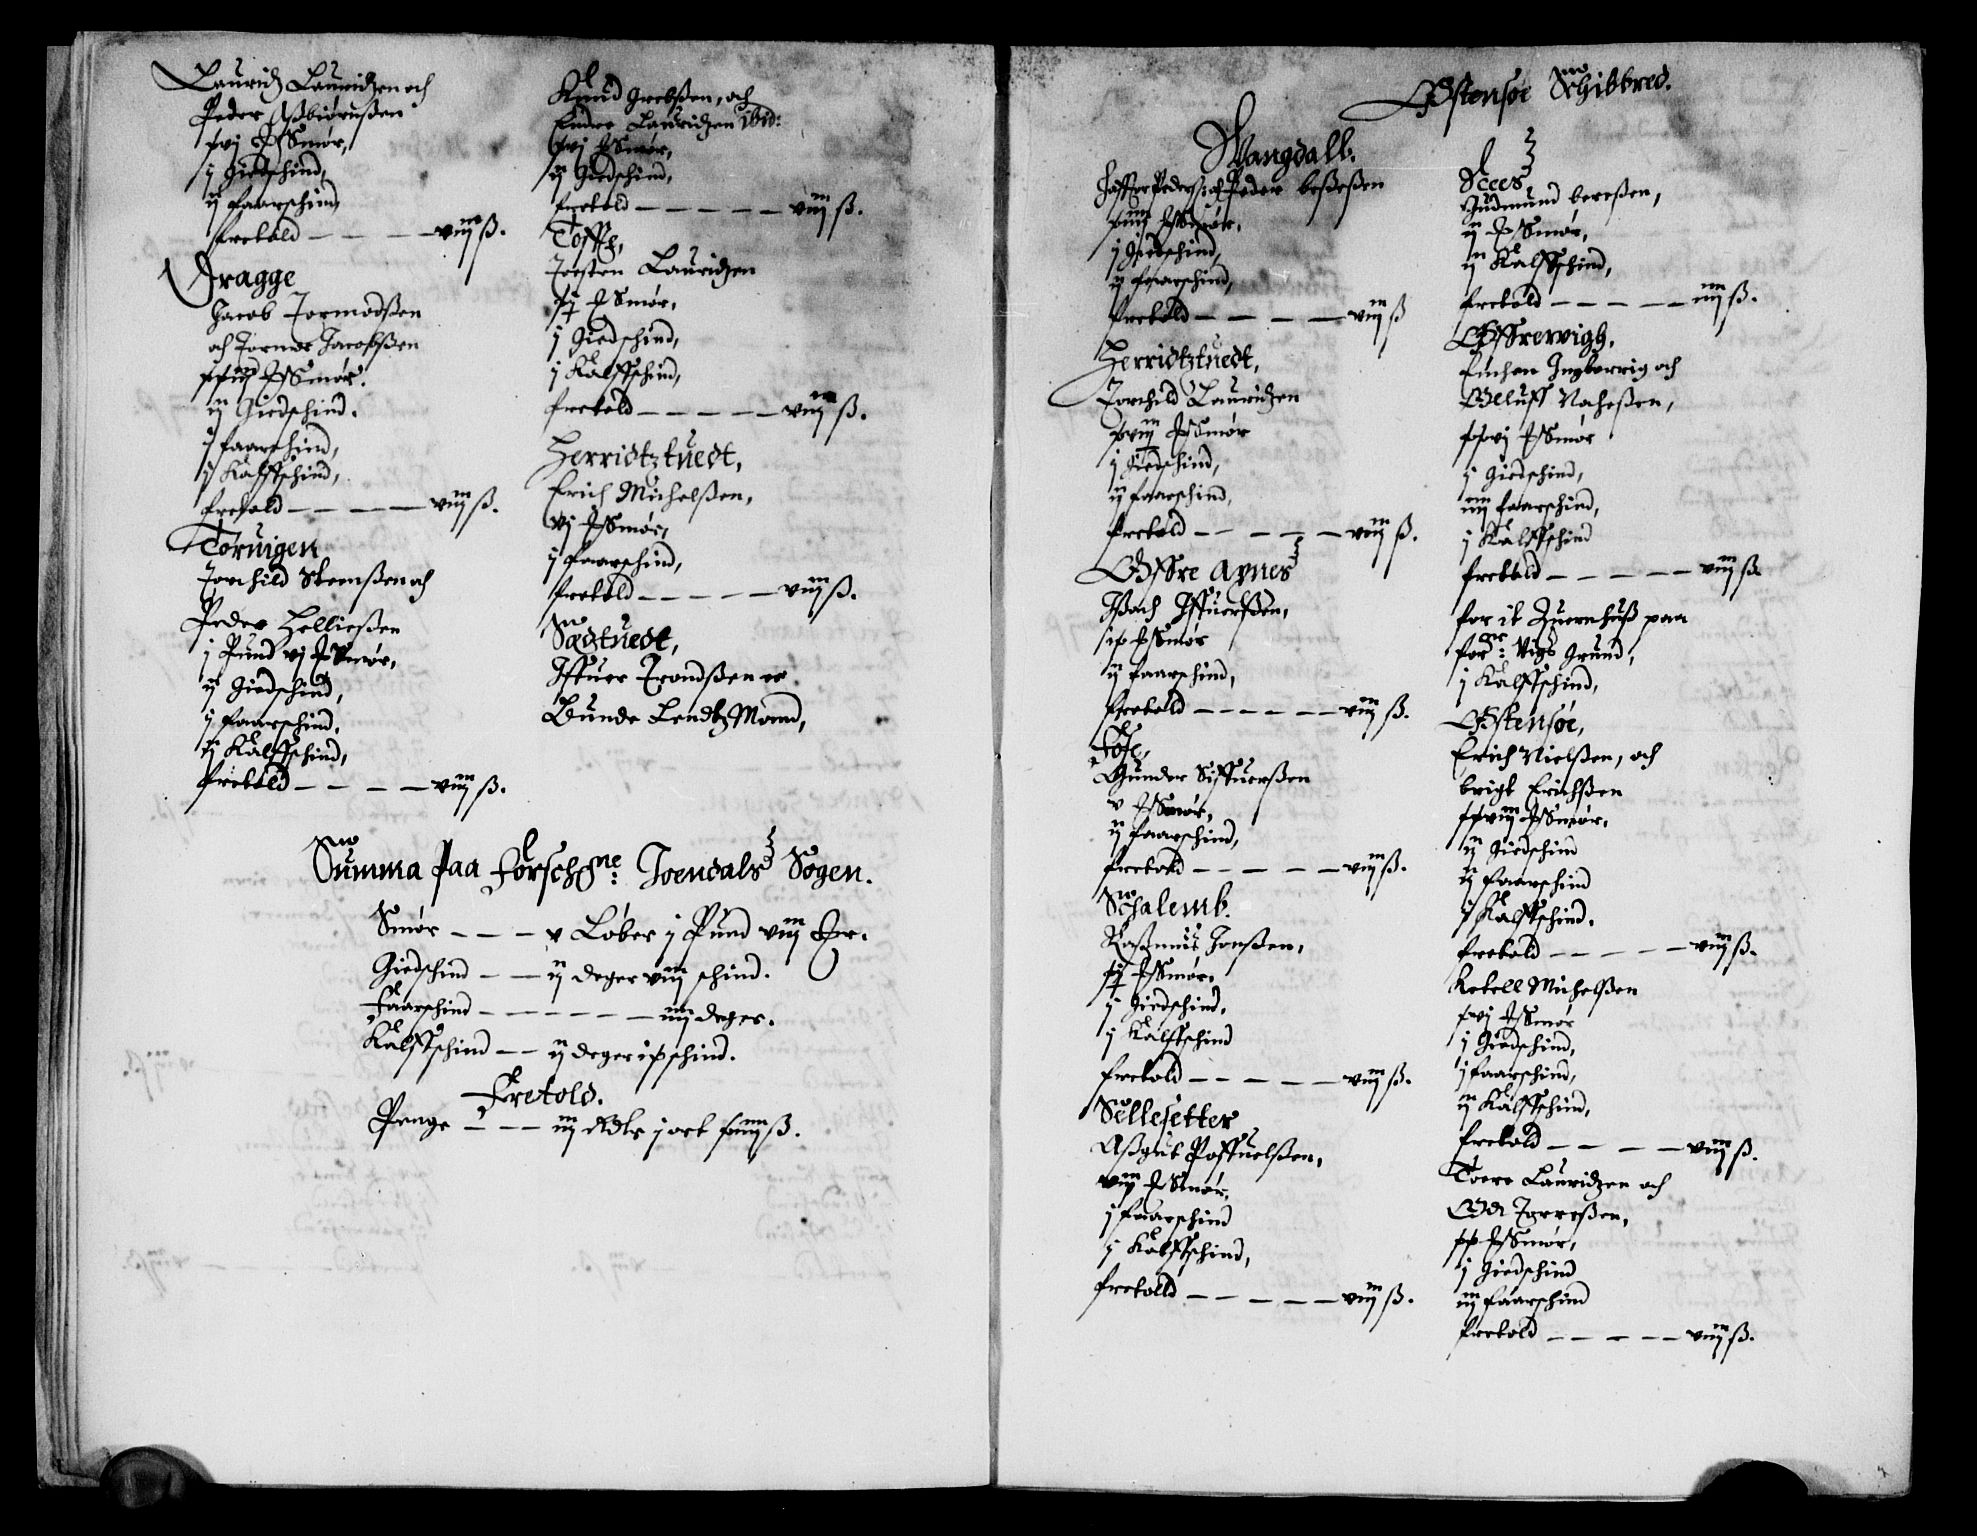 Lauridz Lauridzen och
Peder Aßbiørnßen
xvj ℔ Smør,
j Giedschind,
ij faarschind
fretold — — — — viij ß.
Dragge
Jacob Tormodßen
och Tormor Jacobßen
xxiij ℔ Smør.
ij Giedschind.
j faarschind,
j Kalffschind,
fretold — — — — viij ß.
Toruigen
Torchild Steenßen och
Peder Helließen
j Pund vj ℔ Smør,
ij Giedschind,
j faarschind,
ij Kalffschind,
fretold — — — — viij ß.
Knud Grebßen, och
Endre Lauridzen ibid:
xvj ℔ Smør,
ij Giedschind,
fretold — — — — — viij ß.
Toffte,
Torsten Lauridzen
xij ℔ Smør,
j Giedschind,
j Kalffschind,
fretold — — — — — viij ß.
Herridtztuedt,
Erich Michelßen,
vj ℔ Smør,
j faarschind,
fretold — — — — — viij ß.
Sædtuedt,
Iffuer Trondßen er
Bunde Lendtz Mand,
Summa paa forschne: Joendals Sogen.
Smør — — — v Løber j Pund viij ℔r.
Giedschind — — ij deger viij schind.
Faarschind — — — — — — iiij deger.
Kalffschind — — ij deger ix schind.
Fretold.
Penge — — — iij Rdlr j ort xiiij ß.
Østensøe Schibbred.
Wangdall.
Peder och Peder
℔ Smør,
j Giedschind,
ij faarschind,
fretold — — — — — viij ß
Herridtztuedt,
Torchild Lauridzen
xviij ℔ Smør
j Giedschind,
ij faarschind,
fretold — — — — — viij ß.
Øffre Aynes
Isach Iffuerßen,
ix ℔ Smør
ij faarschind,
fretold — — — — — — viij ß.
Tofte,
Gunder Siffuerßen
v ℔ Smør,
ij faarschind,
fretold — — — — — viij ß.
Schalemb.
Raßmus Jonßen,
xij ℔ Smør,
j Giedschind,
j Kalffschind
fretold — — — — — viij ß.
Sellesetter
Aßgut Poffuelßen,
viij ℔ Smør,
j faarschind
j Kalffschind,
fretold — — — — — viij ß.
Scees
Gudmund
ij ℔ Smør,
ij Kalffschind,
fretold — — — — — iiij ß.
Øffrewigh,
Einchen Ingborrig och
Øeluff Nacheßen,
xxvj ℔ Smør
j Giedschind,
iiij faarschind,
j Kalffschind
fretold — — — — — viij ß.
for it Quernhuß paa
for:ne Vigs Grund,
j Kalffschind,
Østensøe,
Erich Nielßen, och
brigt Erichßen
xxviij ℔ Smør,
ij Giedschind
ij faarschind
j Kalffschind.
fretold — — — — — viij ß.
Ketell Michelßen
xvj ℔ Smør
j Giedschind,
j faarschind,
ij Kalffschind,
fretold — — — — viij ß.
Toere Lauridzen och
Odt Torreßen,
xx ℔ Smør,
j Giedschind
iij faarschind
fretold — — — — — viij ß.